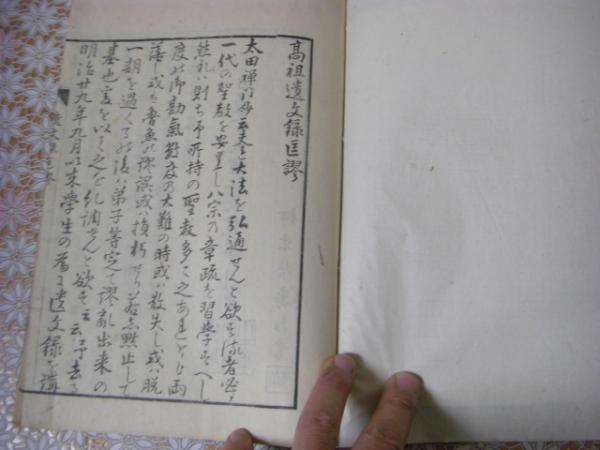 高祖遺文録匡謬
太田禅門抄云夫レ大法を弘通せんと欲する者必す
一代の聖教を安置し八宗の章疏を習學すへし
然れハ則ち予所持の聖教多々之ありとも両
度の御勘氣数度の大難の時或ハ散失し或ハ脱
落し或ハ魯魚の謬誤或ハ損朽せり若し黙止して
一期を過くるの後ハ弟子等定て謬亂出来の
基也爰を以て之を糺調せんと欲す云云予去る
明治廿九年九月以来學生の為に遺文録を講